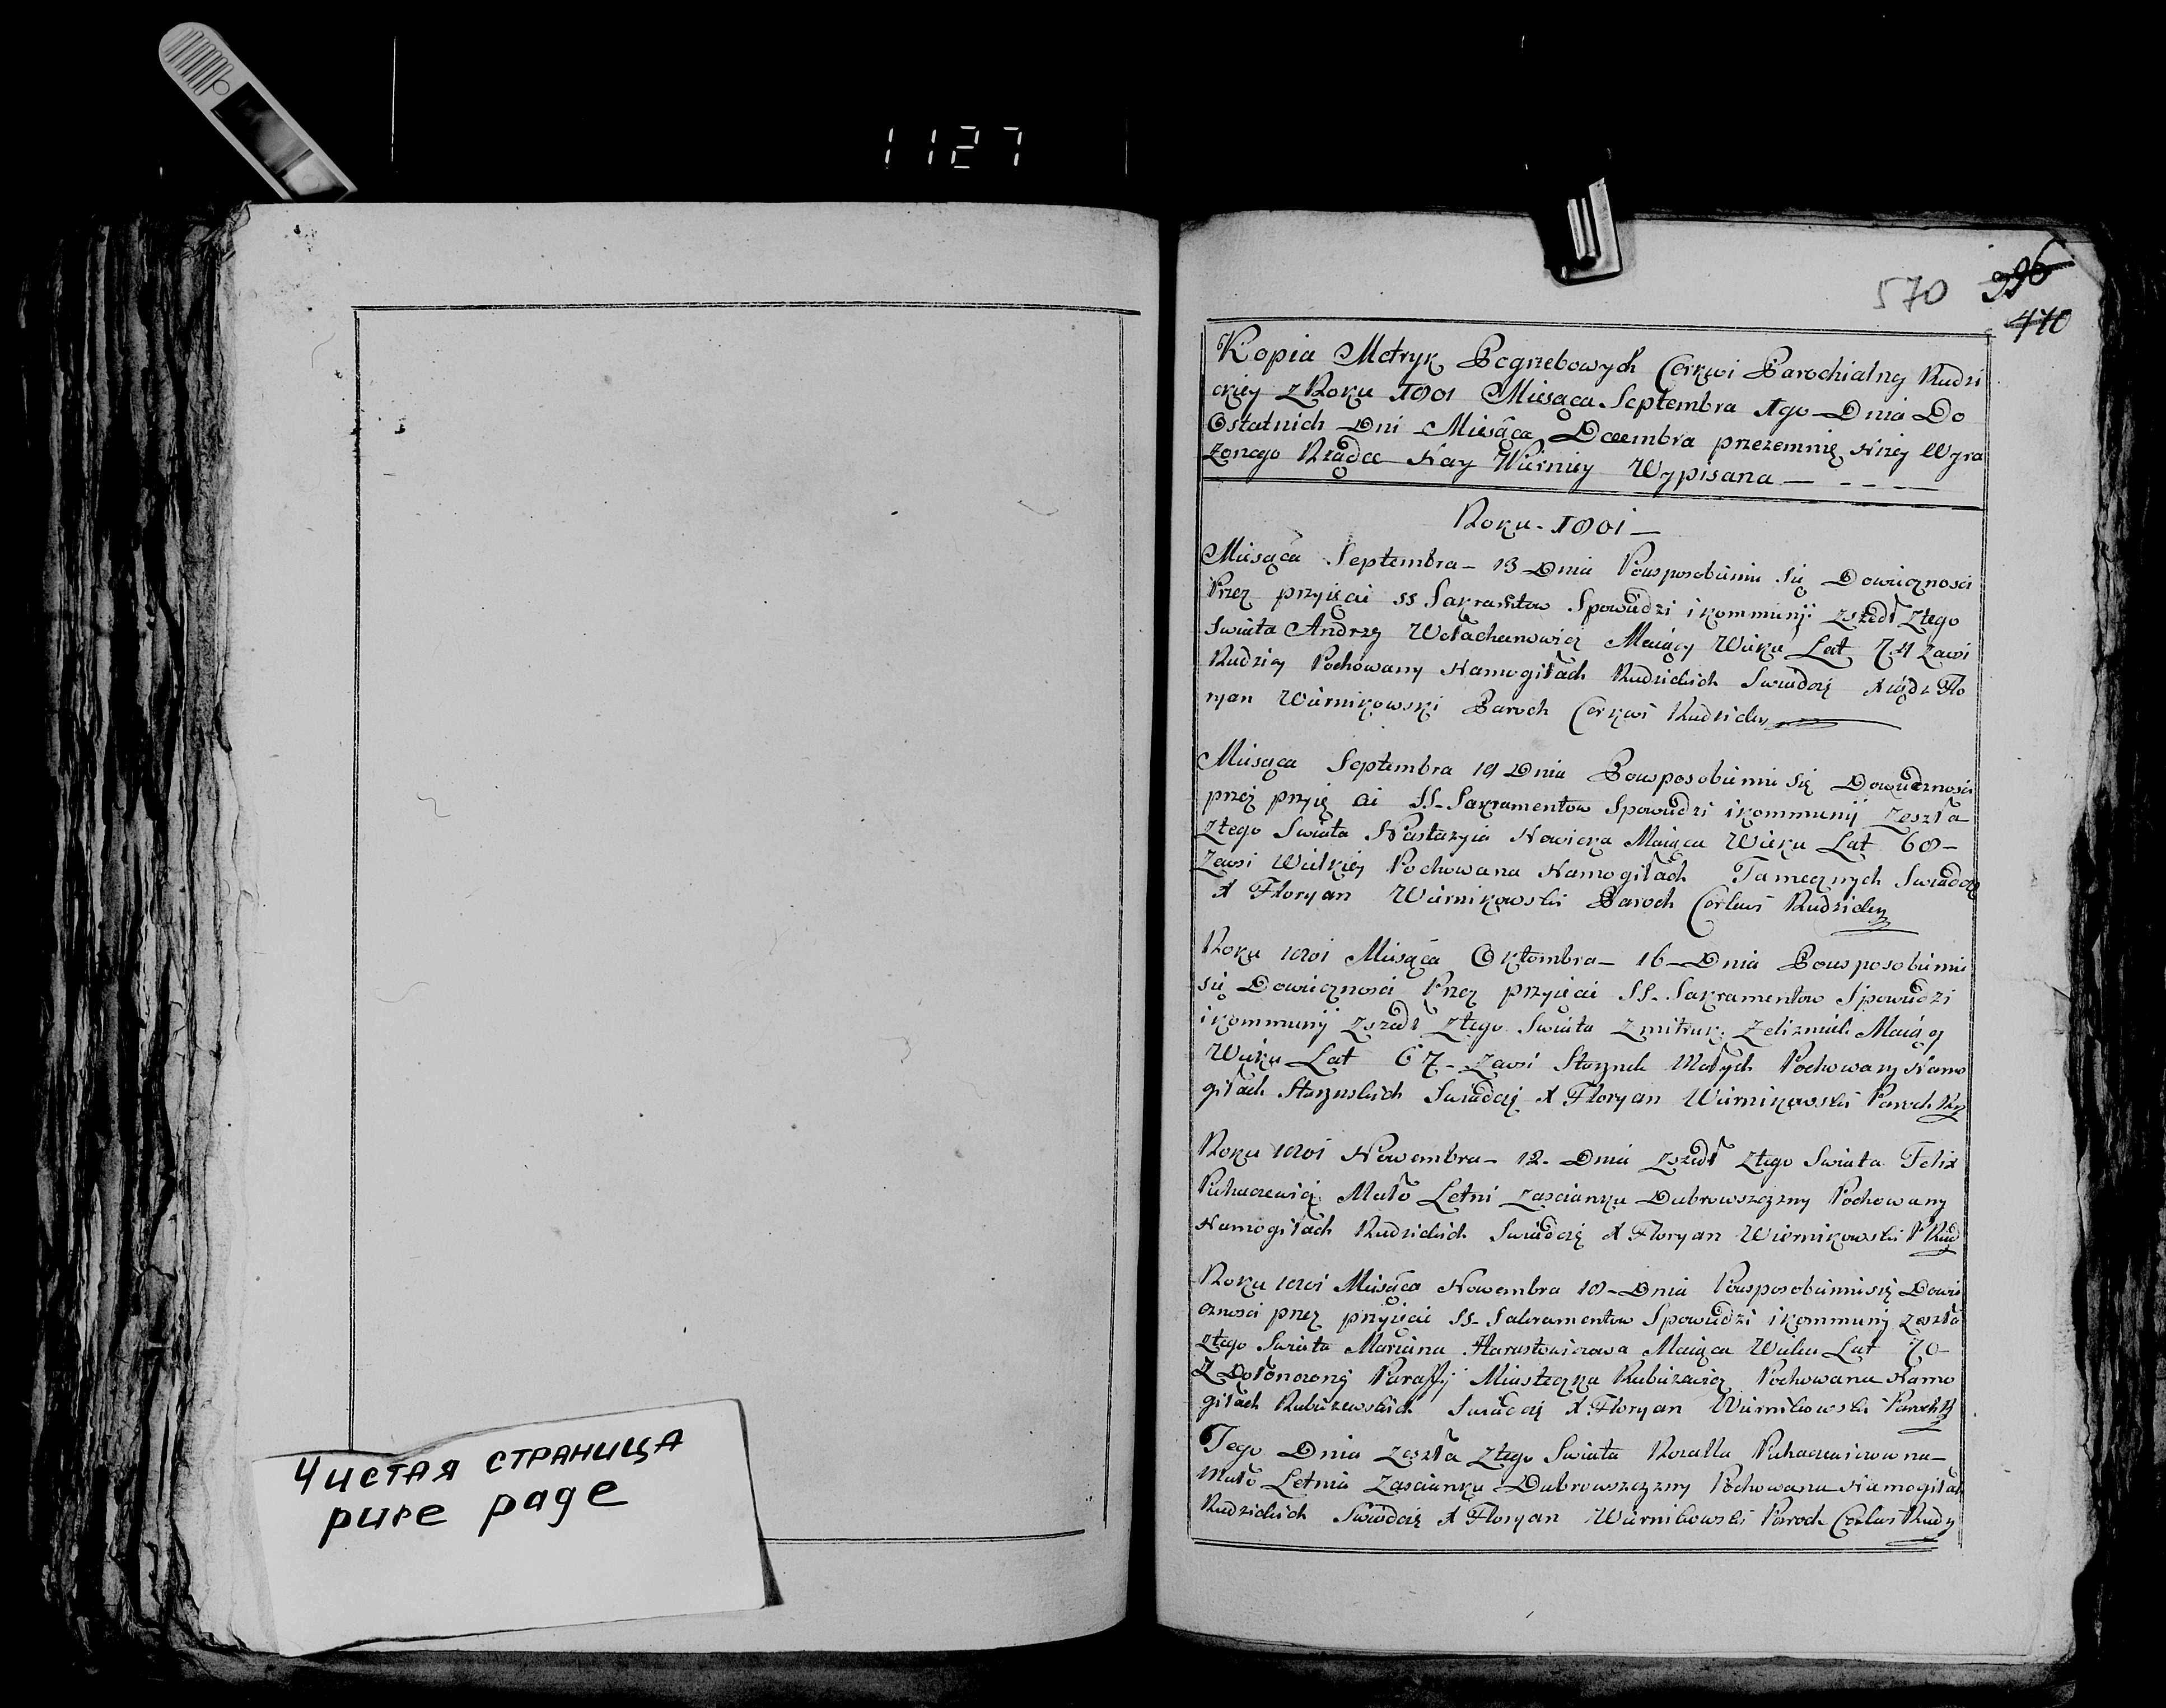 1127
570 396
470
Kopia Metryk Pogrzebowych Cerkwi Parochialney Rudzi
ckiey z Roku 1801 Miesąca Septembra 1go Dnia Do
Ostatnich Dni Miesąca Decembra przezemnię Niżey Wyra
żonego Rządce Nay Wierniey Wypisana
Roku 1801
Miesąca Septembra 13 Dnia Pousposobieniu Się Dowiecznosci
Przez przyięcie SS Sakramtow Spowiedzi i kommunij zszedł Ztego
Swiata Andrzey Wołachanowicz Maiący Wieku Lat 74 Zawsi
Rudzicy Pochowany Namogiłach Rudzickich Swiadczę Xiądz Flo
ryan Wiernikowski Paroch Cerkwi Rudzickiey
Miesąca Septembra 19 Dnia Pousposobieniu Się Dowiecznosci
przez przyię cie SS Sakramentow Spowiedzi i kommunij Zeszła
Ztego Swiata Nastazyia Nowicka Maiąca Wieku Lat 68
Zawsi Wielkiey Pochowana Namogiłach Tamecznych Swiadczę
X Floryan Wiernikowski Paroch Cerkwi Rudzickiey
Roku 1801 Miesąca Oktombra 16 Dnia Pousposobieniu
się Dowiecznosci Przez przyięcie SS Sakramentow Spowiedzi
i kommunij Zszedł Ztego Swiata Zmitruk Maiący
Wieku Lat 67 Zawsi Małych Pochowany Namo
giłach Swiadczę X Floryan Wiernikowski Paroch
Roku 1801 Nowembra 12 Dnia Zszedł Ztego Swiata Felix
Puhaczewicz Mało Letni Zascianku Dubrowszczyzny Pochowany
Namogiłach Rudzickich Swiadczę X Floryan Wiernikowski P Rud
Roku 1801 Miesąca Nowembra 18 Dnia Pousposobieniu się Dowie
cznosci przez przyięcie SS Sakramentow Spowiedzi i kommunij zeszła
Ztego Swiata Maryina Maiąca Wieku Lat 70
Parafij Miasteczka Rubieżewicz Pochowana Namo
giłach Rubieżewskich Swiadczę X Floryan Wiernikowski Paroch
Tego Dnia Zeszła Ztego Swiata Rozalla Puhaczewiczowna
Mało Letnia Zascianku Dubrowszczyzny Pochowana Namogiłach
Rudzickich Swiadczę X Floryan Wiernikowski Paroch Cerkwi Rudy
Чистая страница
pure page